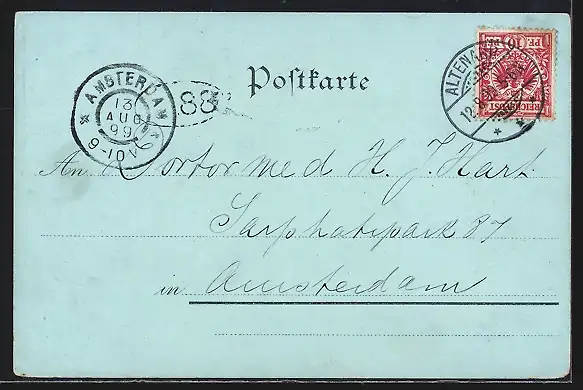 Postkarte
AMSTERDAM
13
AUG
99
9-10V
88
ALTENA
12.8.
REICHSPOST
10
An Doctor med H. J. Hart.
Sarphatipark 87
in Amsterdam